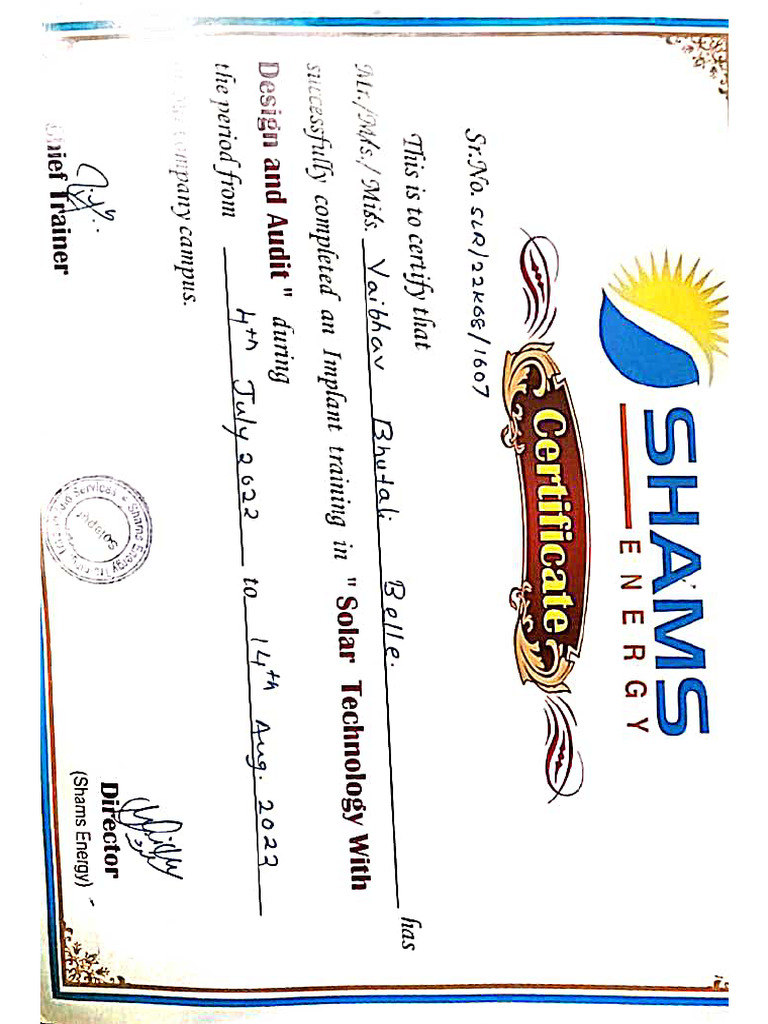 SHAMS
ENERGY
Certificate
Sr.No. SLR/22K68/1607
This is to certify that
Mr./Mrs./ Miss. Vaibhav Bhutali Belle. has
successfully completed an Implant training in " Solar Technology With
Design and Audit " during
the period from 4th July 2022 to 14th Aug. 2022
company campus.
Chief Trainer
Solapur
Director
(Shams Energy)